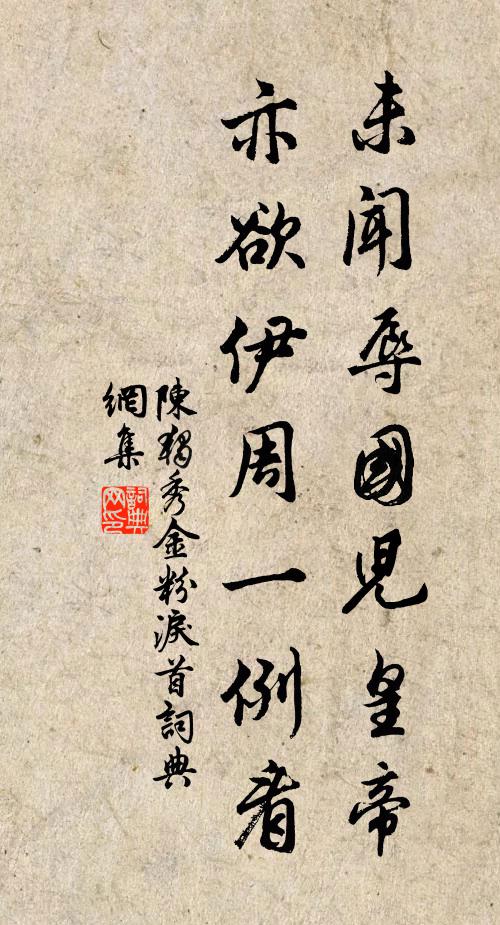 未聞辱國兒皇帝
亦欲伊周一例看
陳獨秀金粉淚首詞典
網集
詞典網印